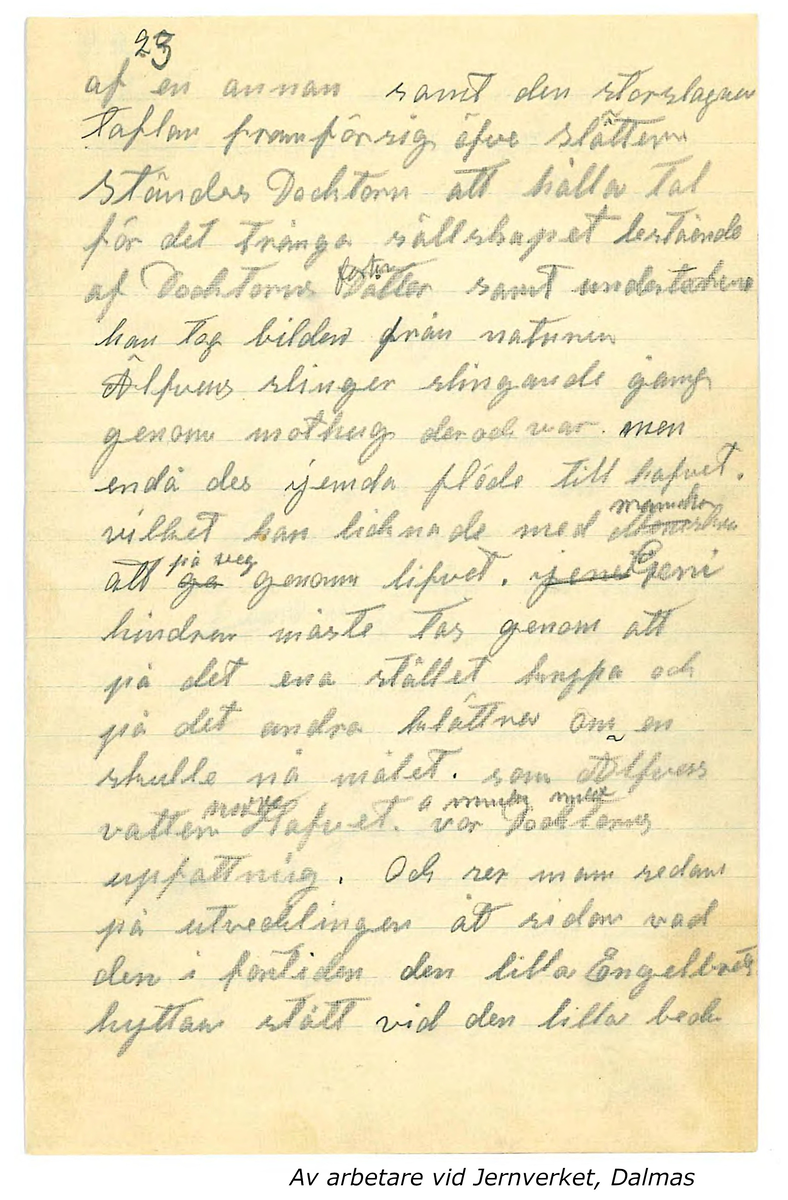 23
af en annan samt den storslagna
taflan framför sig öfve slätten
ständes Docktorn att hålla tal
för det trånga sällskapet bestående
af Docktorns Dotter samt underteckna
han tog bilden från naturen
Älfvens slinger slingande gång
genom mothug der och var. men
endå des jemda flöde till hafvet.
vilket han licknade med
att ga på veg genom lifvet. Geni
hindren måste tas genom att
på det ena stället hoppa och
på det andra klättra om en
skulle nå målet. som Älfvens
vatten Hafvet. vor Docktorns
uppfattnig. Och ser mam sedan
på utvecklingen åt sidan vad
den i forntiden den lilla Engelbrets
hyttan stått vid den lilla beck
Av arbetare vid Jernverket, Dalmas